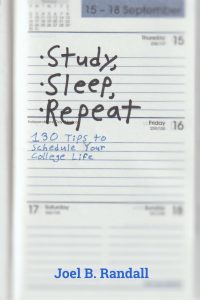 15 – 18 September
Thursday 15
·Study,
·Sleep,
·Repeat
Friday 16
130 Tips to
Schedule Your
College Life
17 Saturday
Sunday 18
Joel B. Randall